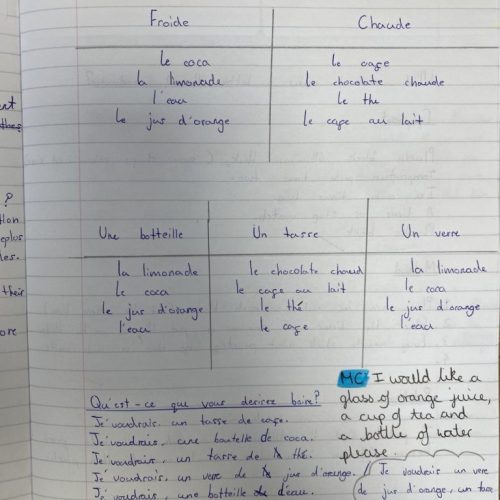 Froide Chaude
le coca le cafe
la limonade le chocolate chaude
l'eau le thé
le jus d'orange le cafe au lait
Une botteille Un tasse Un verre
la limonade le chocolate chaud la limonade
le coca le cafe au lait le coca
le jus d'orange le thé le jus d'orange
l'eau le cafe l'eau
Qu'est-ce que vous derirez boire?
Je voudrais, un tasse de cafe.
Je voudrais, une bouteille de coca.
Je voudrais, un tasse de thé.
Je voudrais, un verre de jus d'orange.
Je voudrais, une botteille de d'eau.
MC I would like a
glass of orange juice,
a cup of tea and
a bottle of water
please.
Je voudrais un verre
de jus d'orange, un